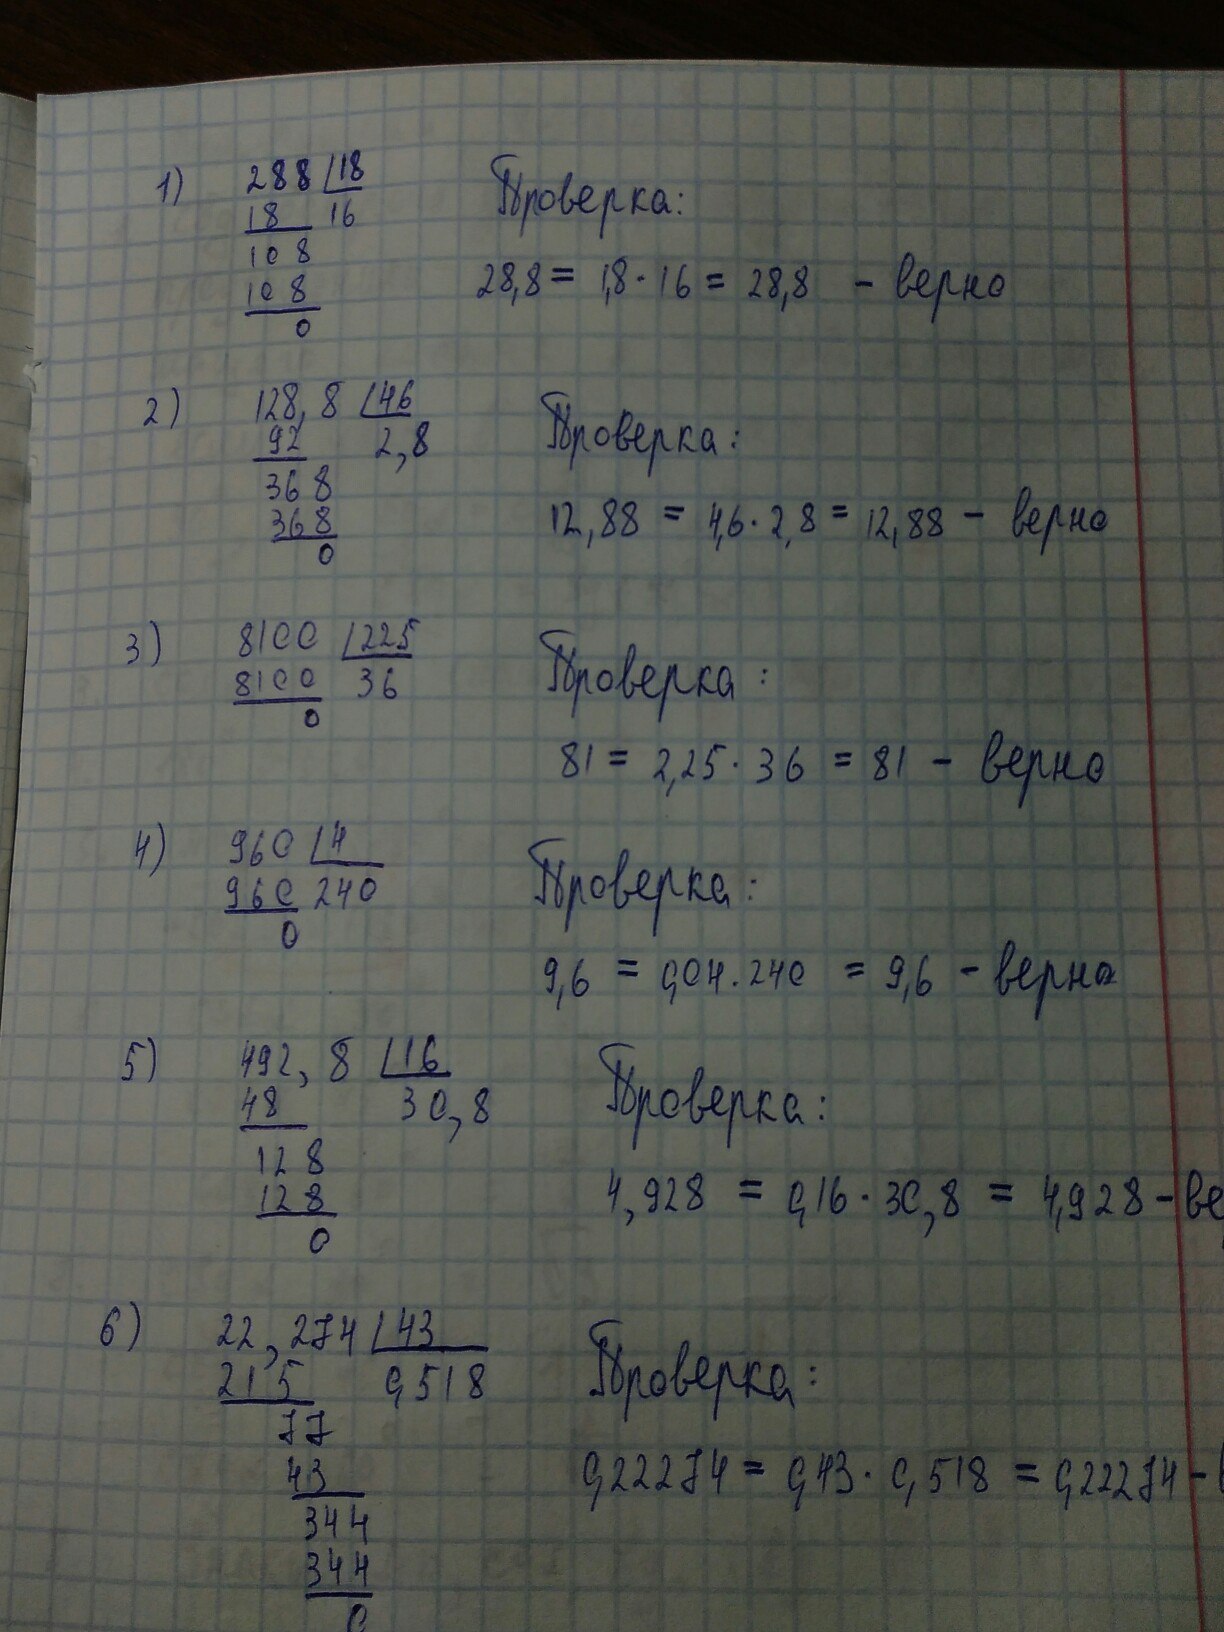 1) 288 | 18 Проверка:
18 16
108
108 28,8 = 1,8 · 16 = 28,8 - верно
0
2) 128,8 | 46 Проверка:
92 2,8
368
368 12,88 = 4,6 · 2,8 = 12,88 - верно
0
3) 8100 | 225 Проверка:
8100 36
0
81 = 2,25 · 36 = 81 - верно
4) 960 | 4 Проверка:
960 240
0
9,6 = 0,04 · 240 = 9,6 - верно
5) 492,8 | 16 Проверка:
48 30,8
128
128 4,928 = 0,16 · 30,8 = 4,928 - ве
0
6) 22,274 | 43 Проверка:
215 0,518
77
43 0,22274 = 0,43 · 0,518 = 0,22274 -
344
344
0